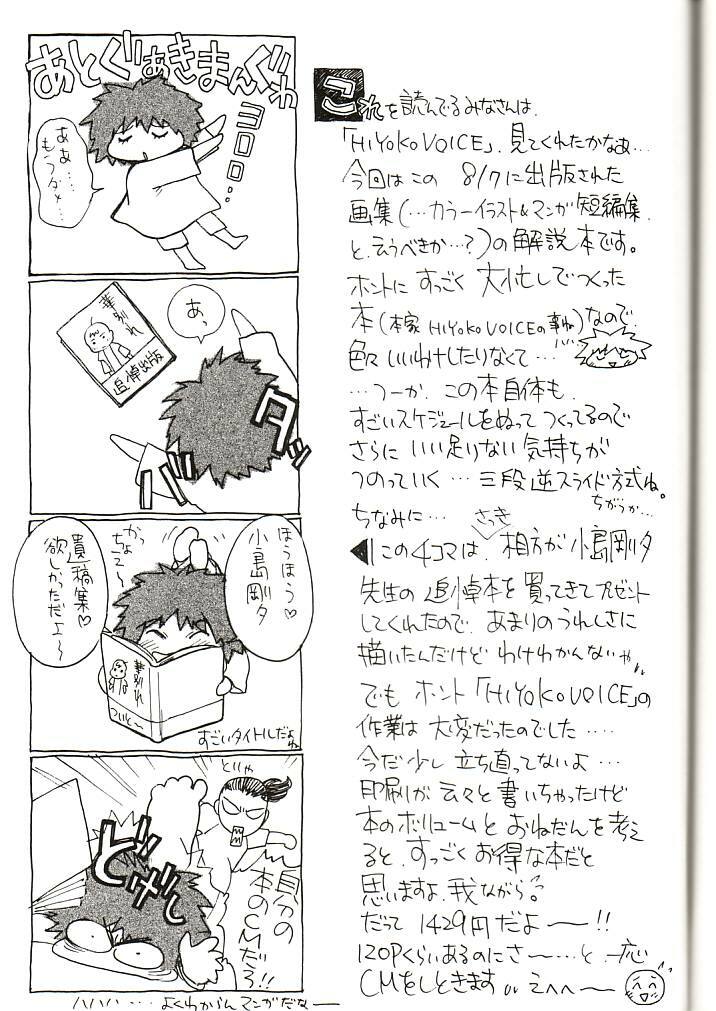 これを読んでるみなさんは、
「HIYOKO VOICE」、見てくれたかなぁ…
今回はこの 8/7に出版された
画集(…カラーイラスト&マンガ短編集、
と、云うべきか…?)の解説本です。
ホントに すっごく 大忙しでつくった
本(本家 HIYOKO VOICEの事ね)なので、
色々 いいわけしたりなくて…
…つーか、この本自体も、
すごいスケジュールをぬって つくってるので
さらに いい足りない 気持ちが
つのっていく… 三段逆スライド方式ね。
ちがうか…
ちなみに…
さっき
◀この4コマは、相方が 小島剛夕
先生の 追悼本を買ってきてプレゼント
してくれたので、あまりのうれしさに
描いたんだけど わけわかんないや。
でも ホント「HIYOKO VOICE」の
作業は 大変だったのでした…
今だ少し 立ち直ってないよ…
印刷が 云々と 書いちゃったけど
本のボリュームと おねだんを 考え
ると、すっごく お得な本だと
思いますよ、我ながら。
だって 1429円だよ〜!!
120Pくらいあるのにさ〜…と、一応
CMをしときます えへへ〜
あとぐぁきまんぐわ
ヨロロ…
ああ…
もうダメ…
あっ
華別れ
追悼出版
ガバッ
ほうほう♡
小島剛夕
かっちょえ〜
遺稿集♡
欲しかっただよ〜
華別れ
すごいタイトルだよね
どげし
とりゃ
自分の
本のCMだろ!!
ハハハ… よくわからんマンガだな〜